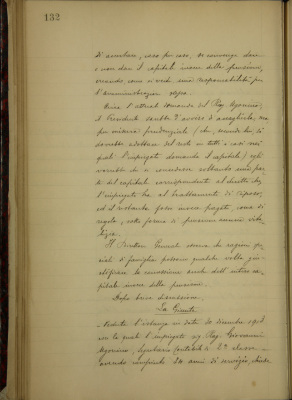 132
di accertare, caso per caso, se convenga dare
o non dare il capitale invece della pensione,
creando, come si vede una responsabilità per
l'amministrazione
Circa l'attuale domanda del Rag. Agonino,
il Presidente sarebbe d'avviso di accoglierla, ma
per misura prudenziale (che, secondo lui, si
dovrebbe adottare del resto in tutti i casi nei
quali l'impiegato domanda il capitale) egli
sarebbe di concedere soltanto una parte
del capitale corrispondente al diritto che
l'impiegato ha al trattamento di riposo,
ed il restante fosse invece pagato, come di
regola, sotto forma di pensione annua vita
lizia.
Il Direttore Generale osserva che ragioni spe
ciali di famiglia possono qualche volta giu
stificare la concessione anche dell'intero ca
pitale invece della pensione.
Dopo breve discussione,
La Giunta
Veduta l'istanza in data 20 dicembre
con la quale l'impiegato sig. Rag. Giovanni
Agonino, Segretario contabile di 2ª classe
avendo compiuto 24 anni di servizio, chiede